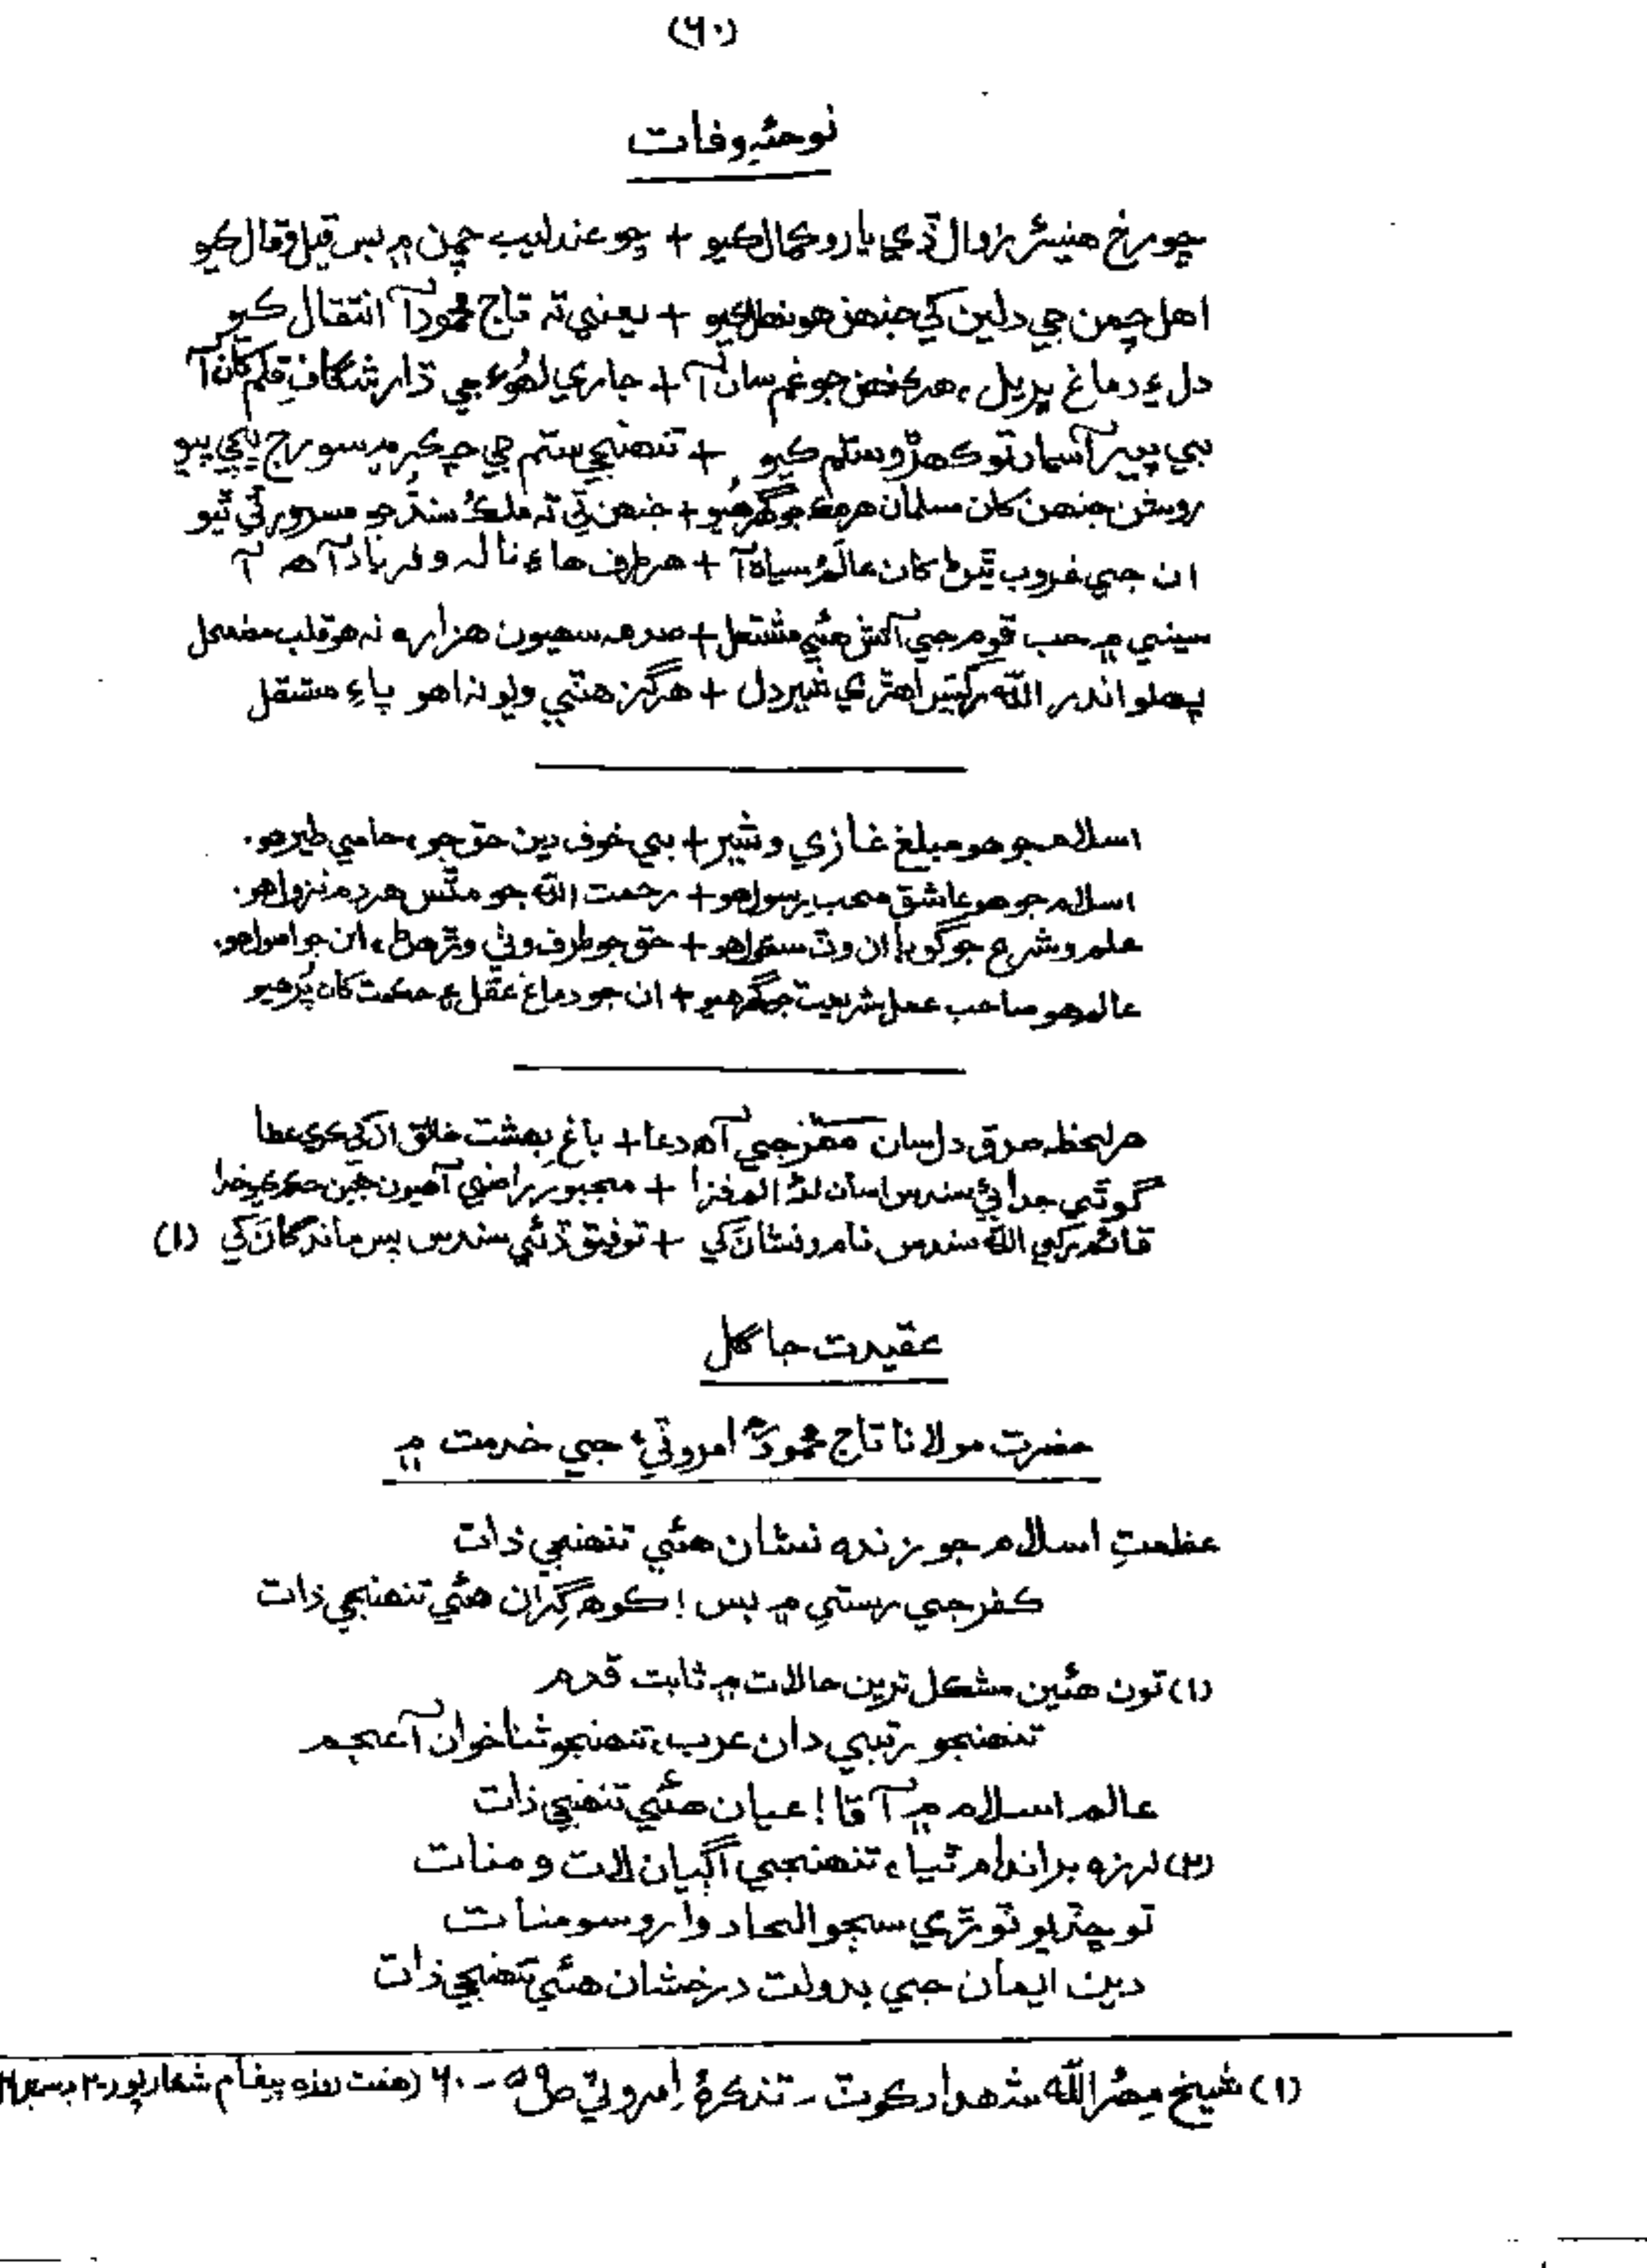 (٦٠)
نوحئهِ وفات
چو مرخ هنيئر زوال ڏي يارو ڪمال ڪيو + چو عندليب چمن ۾ بس قيل و قال ڪيو
اهل چمن جي دلين کي جنهن هو نهال ڪيو + يعني ته تاج محمود آ انتقال ڪيو
دل ۽ دماغ ڀريل، هر ڪنهن جو غم سان آ + جاري لهُوءَ جي ڌار شگافِ قلم کان آ
بي پير آسمان تو ڪهڙو ستم ڪيو + تنهنجي ستم جي چڪر ۾ سورج ڀڄي پيو
روشن جنهن کان مسلمان هر هڪ جو گهر هيو + جنهن تي ته ملڪ سنڌ جو مسرور ٿي ٿيو
ان جي غروب ٿيڻ کان عالمُ سياھ آ + هر طرف هاءِ نالہ و فرياد آھ آ
سيني ۾ حب قوم جي آتش هئي مشتعل + صدمہ سهيون هزارها نہ هو قلب مضمحل
پهلو اندر الله رکيس اهڙي شير دل + هرگز هٽي ويو نہ اهو پاءِ مستقل
اسلام جو هو مبلغ غازي و شير + بي خوف دين حق جو، حامي طير هو.
اسلام جو هو عاشق محب رسول هو + رحمت الله جو مٿس هردم نزول هو.
علم و شرع جو گويا ان وٽ سمول هو + حق جو طرف وٺي وڙهڻ، ان جو اصول هو.
عالم هو صاحب عمل شريعت جو گهر هيو + ان جو دماغ عقل ۽ حڪمت کان پُر هيو
هر لحظہ صدق دل سان جي آھ دعا + باغِ بهشت خالق ان کي ڪري عطا
گوتي جدائي سندس اسان لئہ المغزا + مجبور راضي آهيون جيئن ڪري خدا
قائم رکي الله سندس نام و نشان کي + توفيق ڏئي سندس پس ماندگان کي (١)
عقيدت جا گل
حضرت مولانا تاج محمودؒ امروٽيؒ جي خدمت ۾
عظمتِ اسلام جو زنده نشان هئي تنهنجي ذات
ڪفر جي رستي ۾ بس! ڪوھ گِران هئي تنهنجي ذات
(١) تون هئين مشڪل ترين حالات ۾ ثابت قدم
تنهنجو رتبي دان عرب، تنهنجو ثناخوان آ عجم
عالم اسلام ۾ آقا! عيان هئي تنهنجي ذات
(٢) لرزه براندام ٿيا، تنهنجي اڳيان لات و منات
تو ڇڏيو ٿو ٽڙي سڄو الحاد وارو سومنات
دين ايمان جي بدولت درخشان هئي تنهنجي ذات
(١) شيخ مِصرُ الله شهدادڪوٽ - تذڪرهٔ امروٽي ص ٥٩ - ٦٠ (هفت روزه پيغام شڪارپور